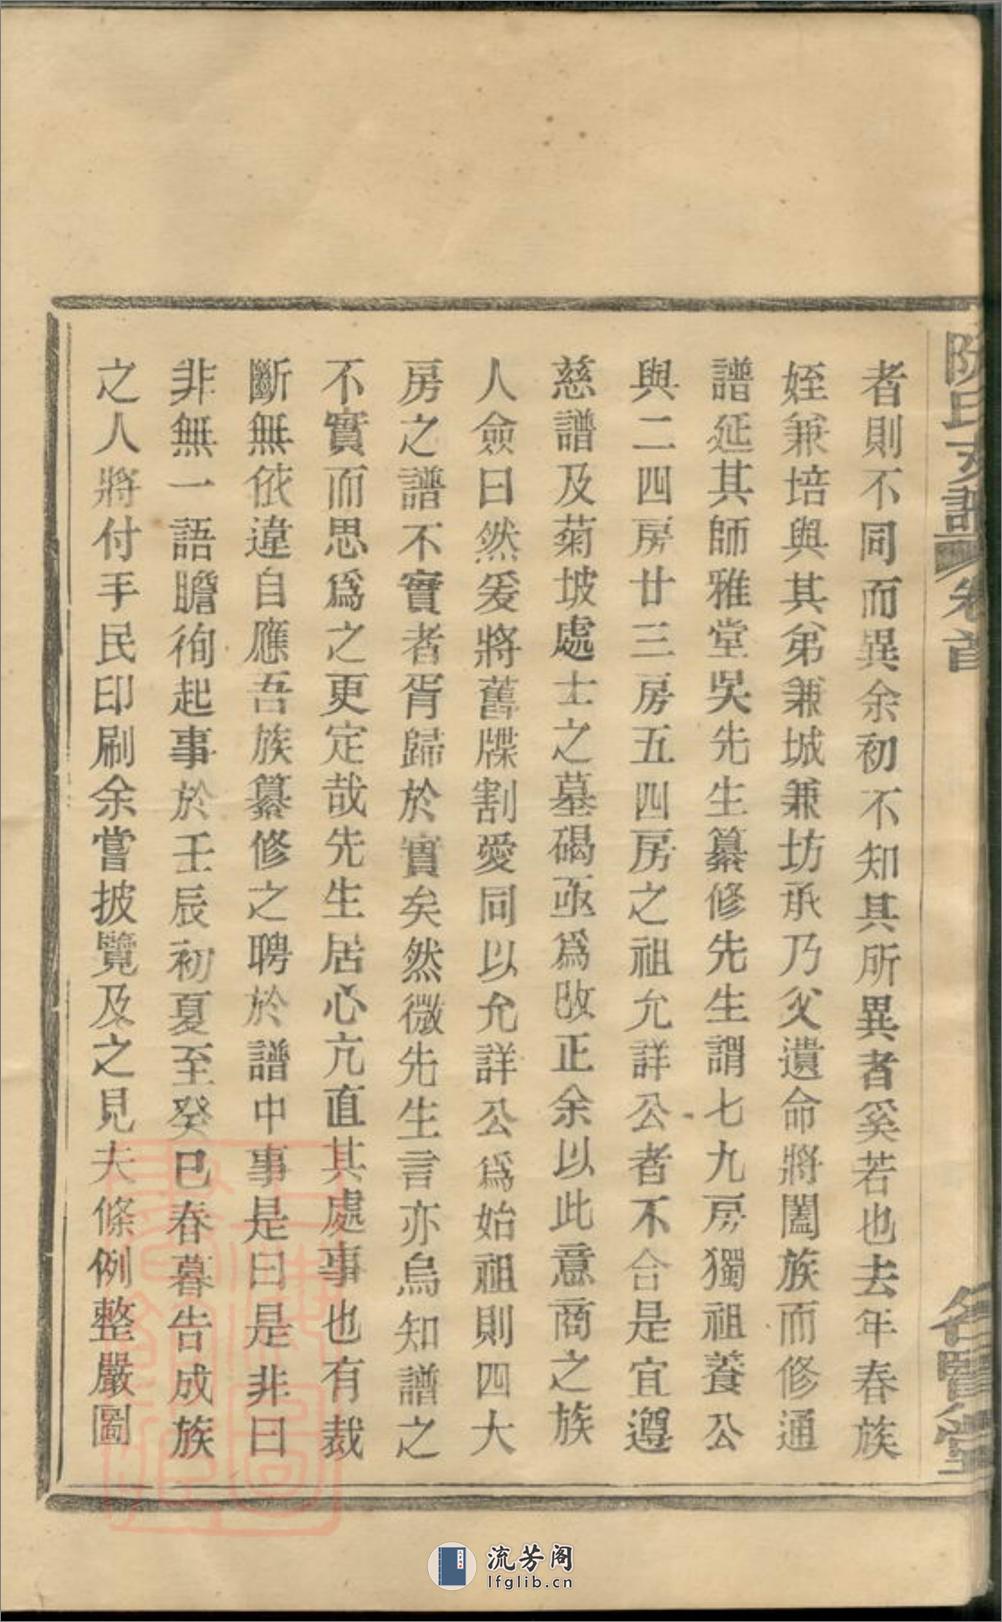 陳氏支譜 卷首 名賢堂
者則不同而異余初不知其所異者奚若也去年春族
姪兼培與其弟兼城兼坊承乃父遺命將闔族而修通
譜延其師雅堂吳先生纂修先生謂七九房獨祖養公
與二四房廿三房五四房之祖允詳公者不合是宜遵
慈譜及菊坡處士之墓碣亟爲改正余以此意商之族
人僉曰然爰將舊牒割愛同以允詳公爲始祖則四大
房之譜不實者胥歸於實矣然微先生言亦烏知譜之
不實而思爲之更定哉先生居心亢直其處事也有裁
斷無依違自應吾族纂修之聘於譜中事是曰是非曰
非無一語瞻徇起事於壬辰初夏至癸巳春暮告成族
之人將付手民印刷余嘗披覽及之見夫條例整嚴圖
流芳阁
lfglib.cn